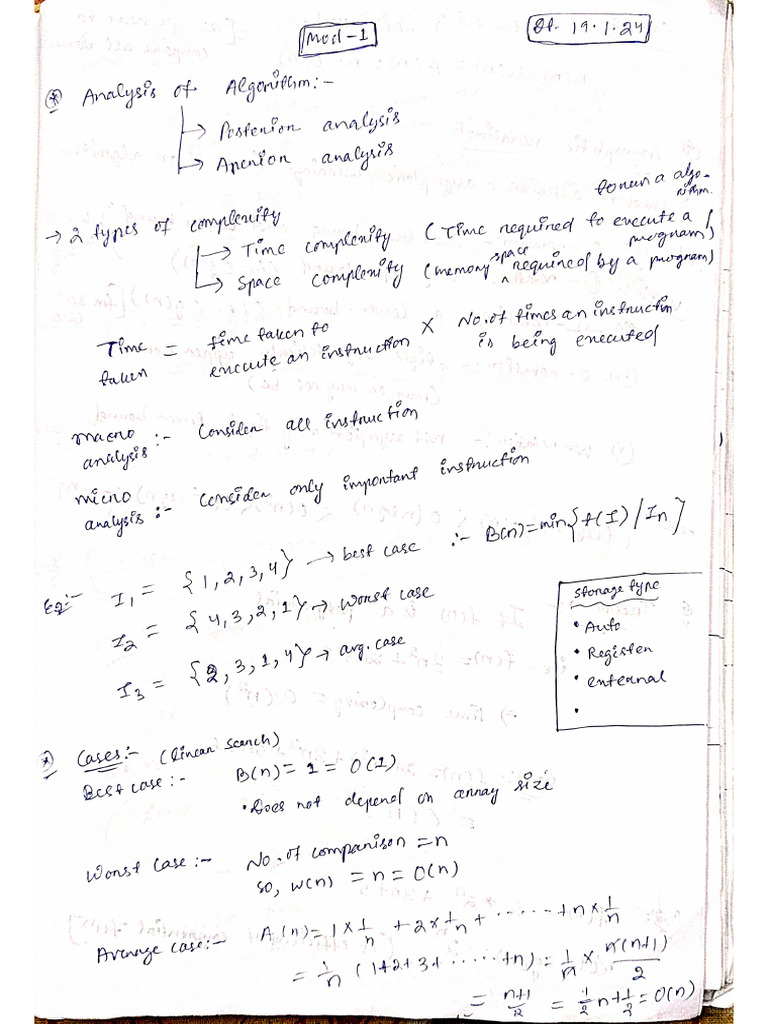 Mod-1
Dt. 19.1.24
* Analysis of Algorithm:-
→ Posterior analysis
→ Aperior analysis
→ 2 types of complexity
to run a algo-
rithm.
→ Time complexity (Time required to execute a / program)
→ Space complexity (memory space required by a program)
Time taken = time taken to execute an instruction × No. of times an instruction is being executed
macro analysis:- Consider all instruction
micro analysis:- Consider only important instruction
Eg:- I₁ = {1, 2, 3, 4} → best case :- B(n) = min{t(I) / In}
I₂ = {4, 3, 2, 1} → worst case
I₃ = {2, 3, 1, 4} → avg. case
Storage type
• Auto
• Register
• external
•
* Cases:- (linear search)
Best case:- B(n) = 1 = O(1)
• Does not depend on array size
Worst case:- No. of comparison = n
so, w(n) = n = O(n)
Average case:- A(n) = 1 × 1/n + 2 × 1/n + ...... + n × 1/n
= 1/n (1+2+3+ ...... +n) = 1/n × n(n+1)/2
= n+1/2 = 1/2 n + 1/2 = O(n)